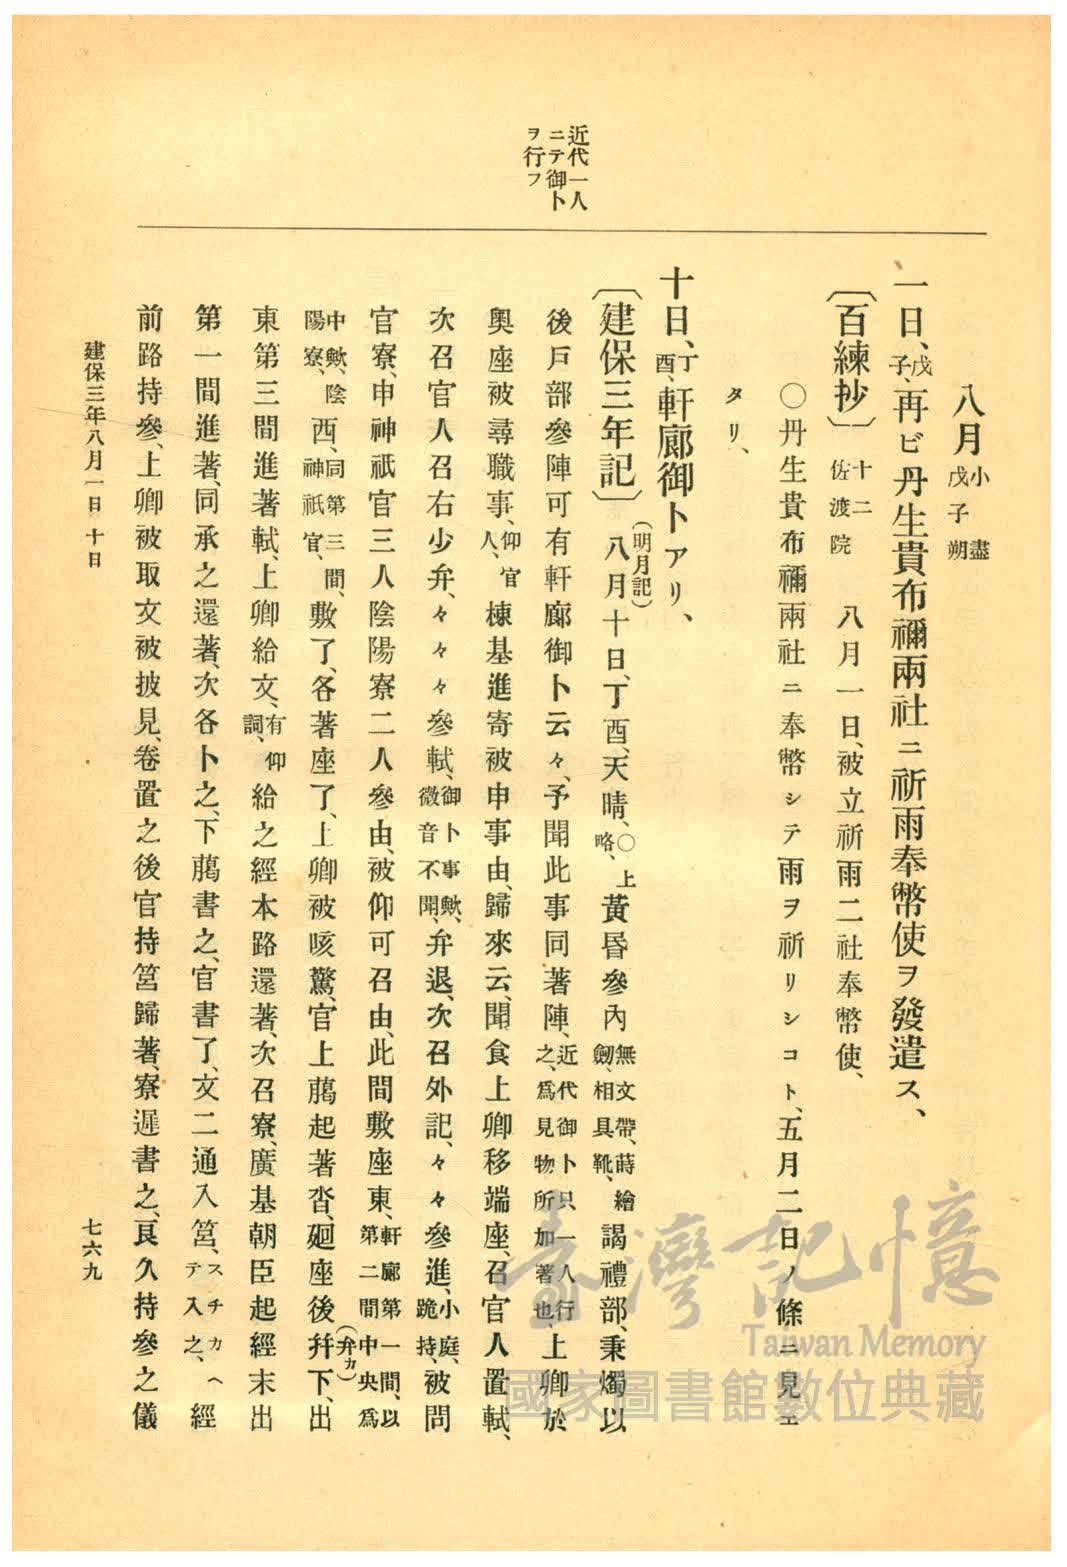 近代一人
ニテ御卜
ヲ行フ
八月小盡戊子朔
一日、戊子、再ビ丹生貴布禰兩社ニ祈雨奉幣使ヲ發遣ス、
〔百練抄〕十二佐渡院 八月一日、被立祈雨二社奉幣使、
〇丹生貴布禰兩社ニ奉幣シテ雨ヲ祈リシコト、五月二日ノ條ニ見エ
タリ、
十日、丁酉、軒廊御卜アリ、
〔建保三年記〕(明月記)八月十日、丁酉、天晴、〇上略、黃昏參內無文帶、蒔繪劒、相具靴、謁禮部、秉燭以
後戶部參陣可有軒廊御卜云々、予聞此事同著陣、近代御卜只一人行之、爲見物所加著也、上卿於
奧座被尋職事、仰官人、棟基進寄被申事由、歸來云、聞食上卿移端座、召官人置軾、
次召官人召右少弁、々々々參軾、御卜事歟、微音不聞、弁退、次召外記、々々參進、小庭、跪持、被問
官寮、申神祇官三人陰陽寮二人參由、被仰可召由、此間敷座東、軒廊第一間、以第二間中央爲
中歟、陰陽寮、西、同第三間、神祇官、敷了、各著座了、上卿被咳驚、官上﨟起著沓、廻座後幷(弁カ)下、出
東第三間進著軾、上卿給文、有仰詞、給之經本路還著、次召寮、廣基朝臣起經末出
第一間進著、同承之還著、次各卜之、下﨟書之、官書了、文二通入筥、スチカヘテ入之、經
前路持參、上卿被取文被披見、卷置之後官持筥歸著、寮遲書之、良久持參之儀
建保三年八月一日 十日
七六九
臺灣記憶
Taiwan Memory
國家圖書館數位典藏